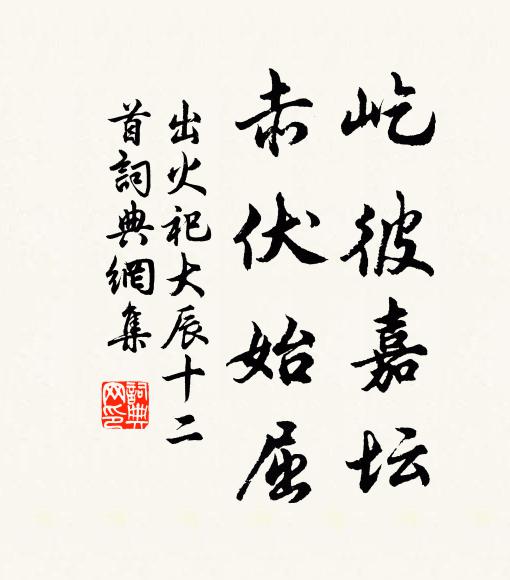 屹彼嘉坛
赤伏始屈
出火祀大辰十二
首詞典網集
詞典
网印